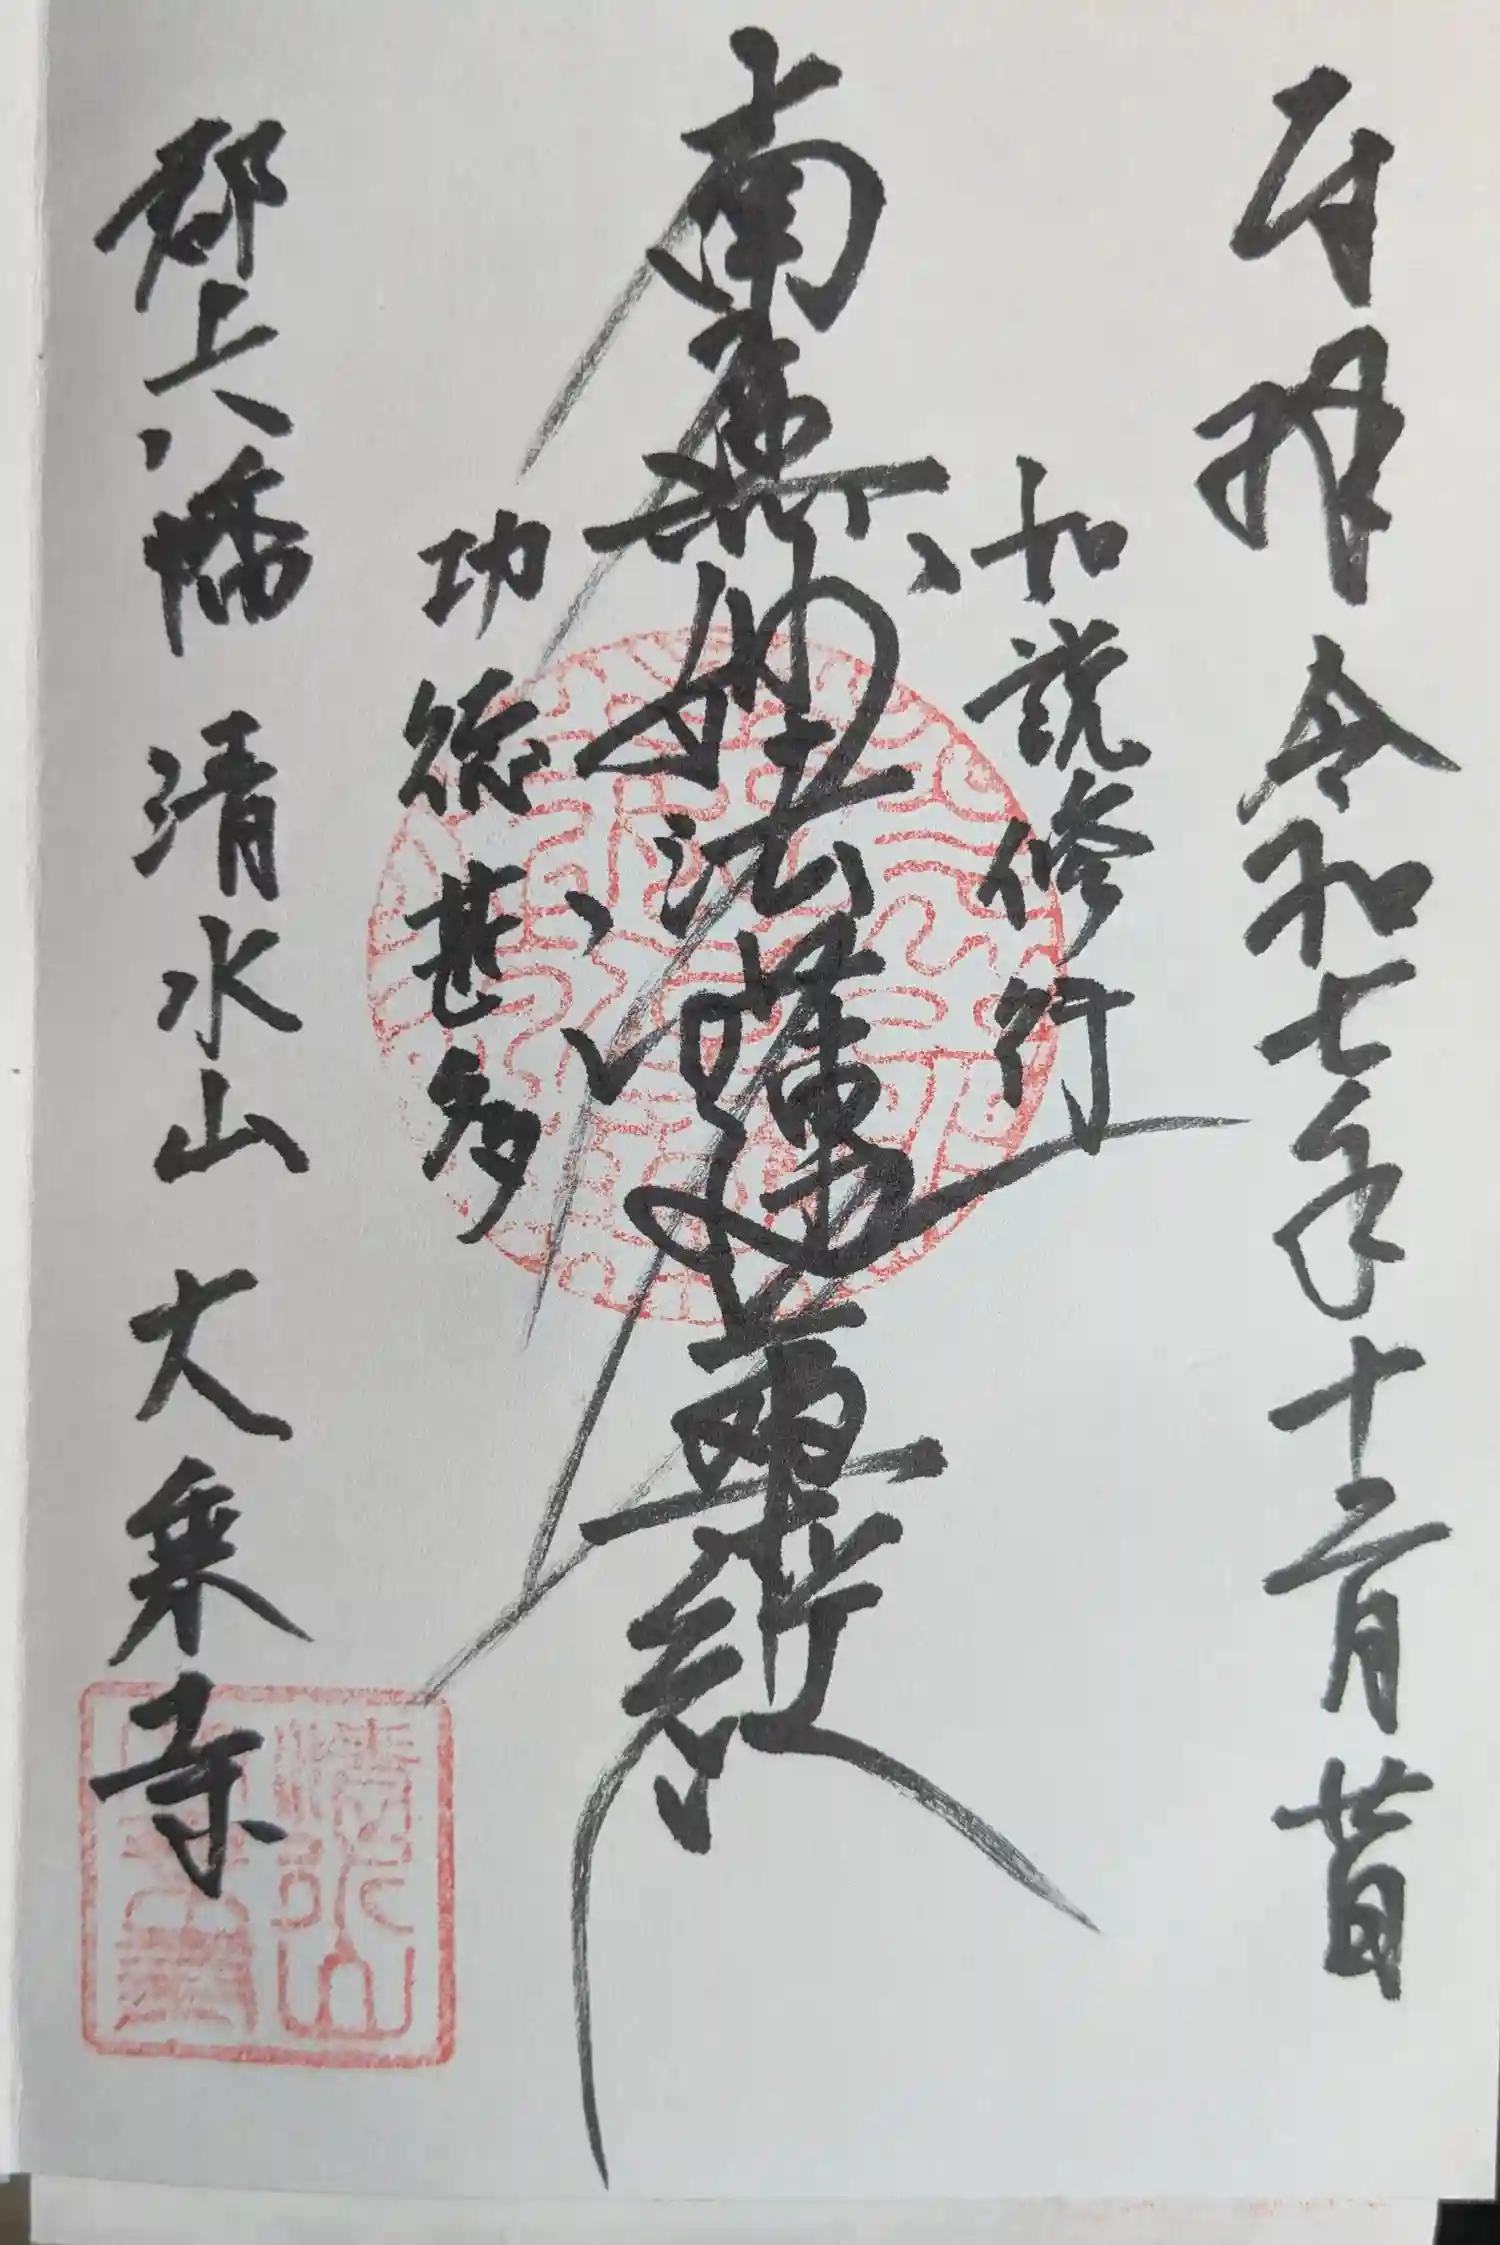 奉拝 令和七年十二月廿日
如説修行
南無妙法蓮華経
功徳甚多
郡上八幡 清水山 大乗寺
清水山